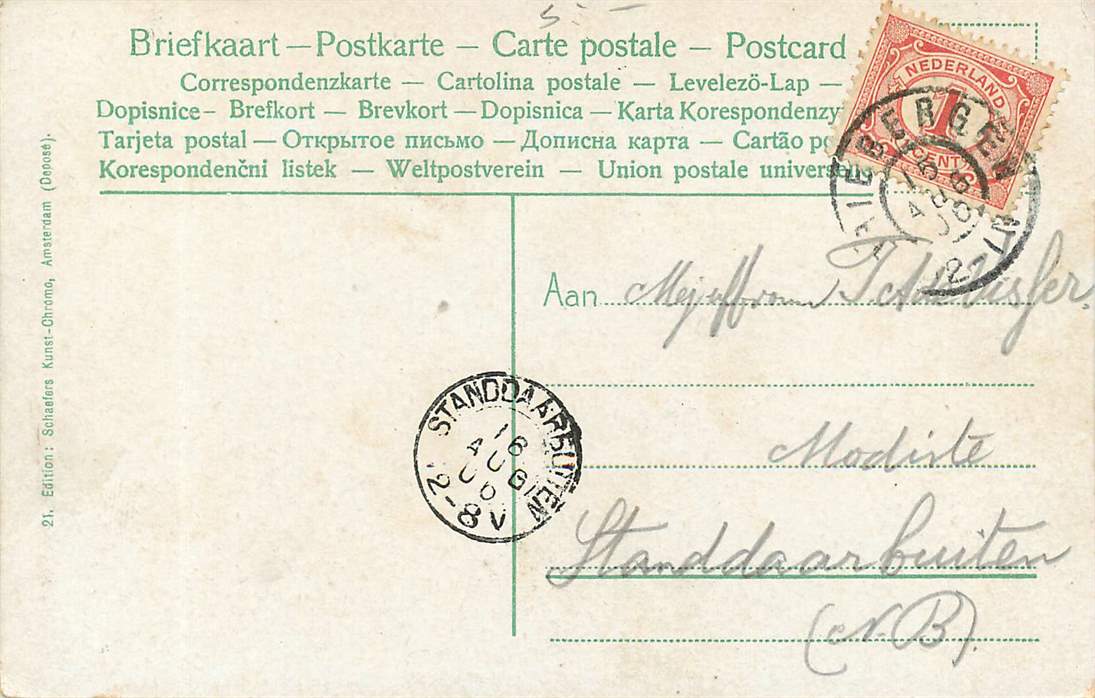 5:-
Briefkaart — Postkarte — Carte postale — Postcard
Correspondenzkarte — Cartolina postale — Levelezö-Lap —
Dopisnice - Brefkort — Brevkort — Dopisnica — Karta Korespondenzy
Tarjeta postal — Открытое письмо — Дописна карта — Cartão po
Korespondenční listek — Weltpostverein — Union postale universe
NEDERLAND
1
CENT
BERGEN
Aan Mejuffrouw
Modiste
Standdaarbuiten
(N.B).
STANDDAARBUITEN
16
AUG
06
2-8V
21. Edition: Schaefers Kunst-Chromo, Amsterdam (Deposé).